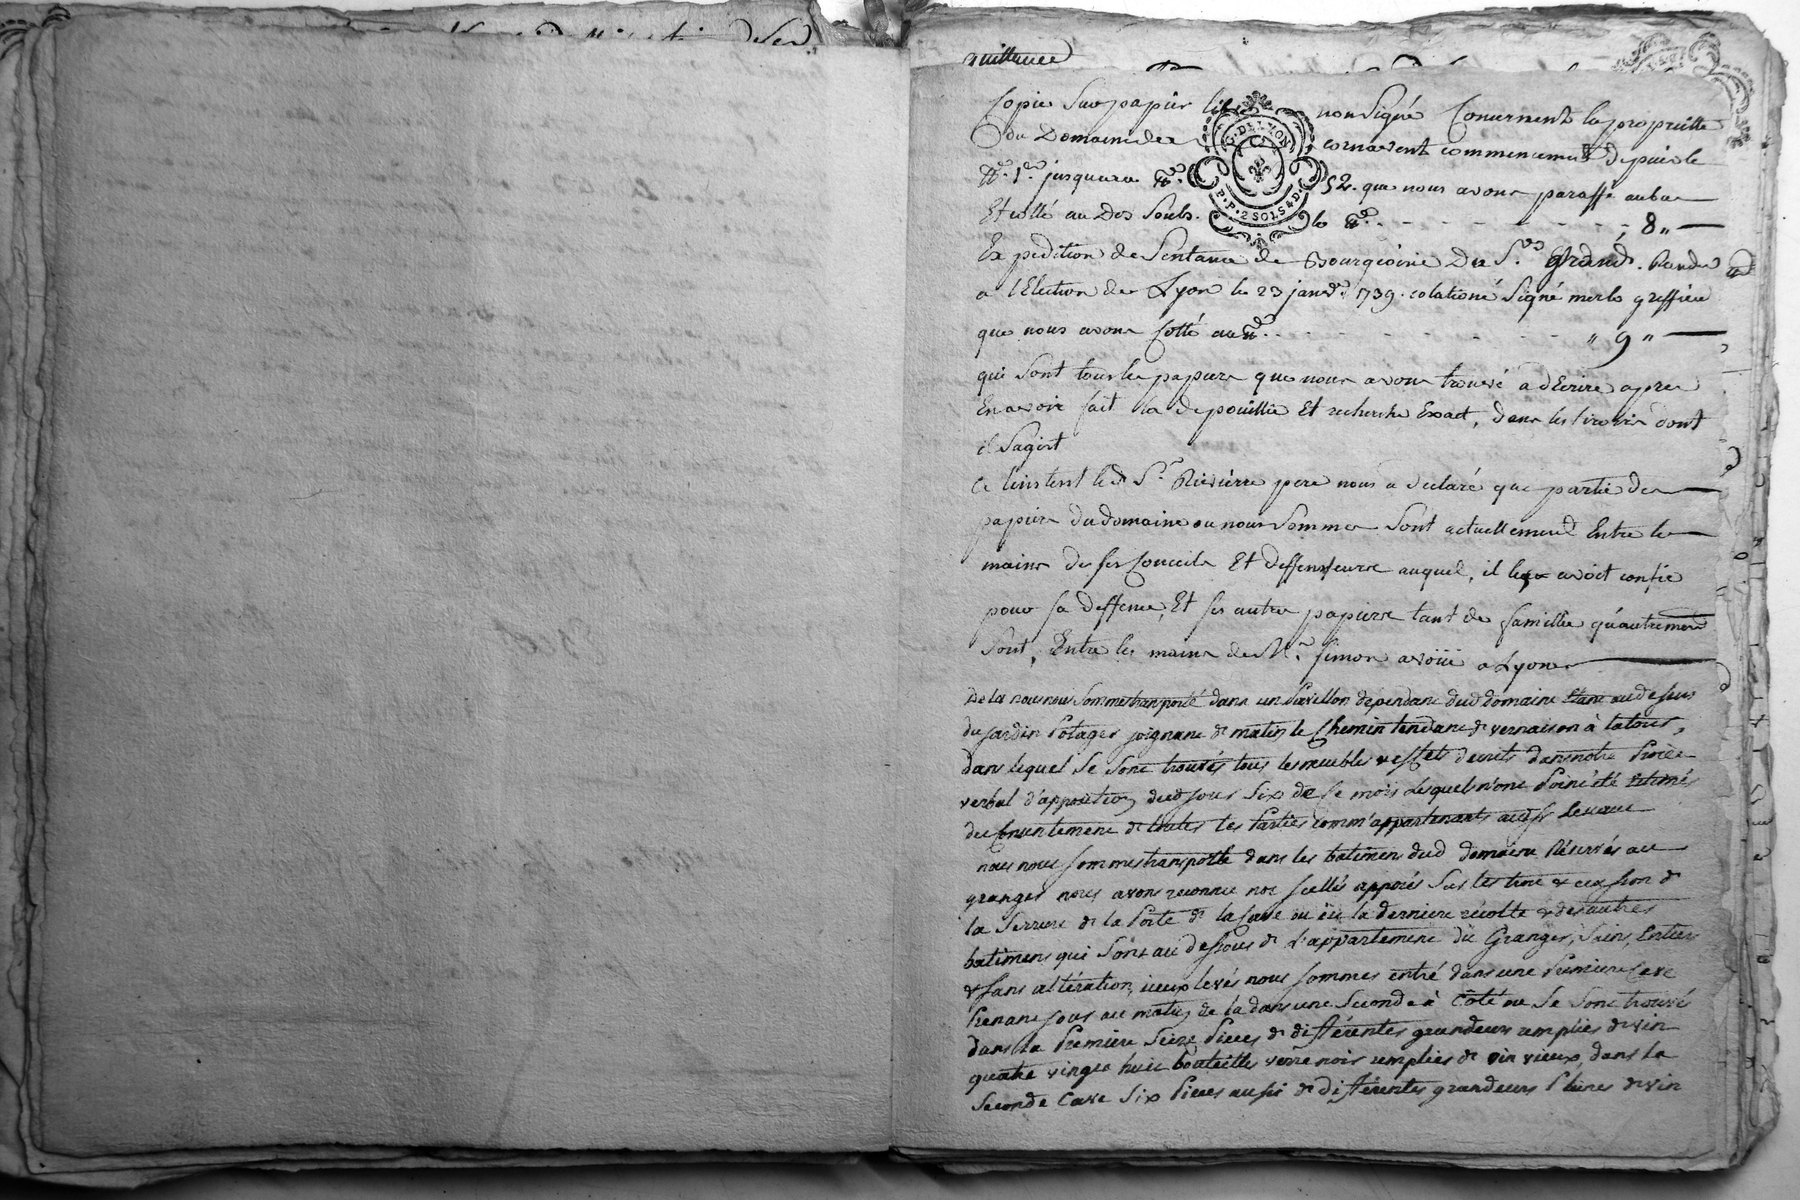 quittance
Copie Sur papier libre non Signé Concernent la proprietté
du Domaine de cornavent commencement depuis le
N.o 1.er jusqu'au N.o 52. que nous avons paraffé au bas
Et cotté au Dos Soub. le N.o - - - - - - - - 8 „ —
Expedition de Sentance de Bourgioisie Du S.r Grand. Rendu
a l'Election de Lyon le 23 janv.r 1739. colationé Signé merlo greffier
que nous avons Cotté au N.o - - - - - - „ 9 „ —
qui Sont tous les papiers que nous avons trouvé a dEcrire apres
En avoir fait la depouillie Et recherche Exact, dans les tiroirs dont
il Sagist
a linstent led S.r Rivierre pere nous a declaré que partie de
papiers du domaine ou nous Sommes Sont actuellement Entre les
mains de ses Conceils Et deffenseurs auquel, il les avoit confié
pour sa deffence, Et ses autres papiers tant de famillie qu'autrement
Sont, Entre les mains de M.e Simon avoüé a Lyon
De la nous nous Sommes transporté dans un Pavillon dependant dud domaine Etant au dessus
du jardin Potager joignant de matin le Chemin tendant de vernaison à la tour,
dans lequel Se Sont trouvés tous les meubles & effets decrits dans notre Procès
verbal d'apposition dud jour Six de Ce mois Lesquels n'ont Point été Estimés
du Consentement de toutes les Parties comm'appartenants aud Sr
nous nous Sommes transporté dans les batimens dud domaine Réservés au
granger nous avons reconnu nos scellés apposés Sur les trou & de
la Serrure de la Porte de la Cave ou est la derniere récolte & des autres
batimens qui Sont au dessous de L'appartement du Granger, Sains, Entiers
& sans altération, iceux levés nous Sommes entré dans une Premiere Cave
Prenant jour au matin, de la dans une Seconde à Côté ou Se Sont trouvé
dans la Premiere Seize Pieces de differentes grandeurs remplies de vin
quatre vingt huit bouteilles verre noir remplies de vin vieux, dans la
Seconde Cave Six Pieces aussi de differentes grandeurs Pleines de vin
G. DE LYON
P. P. 2 SOLS 4 D.